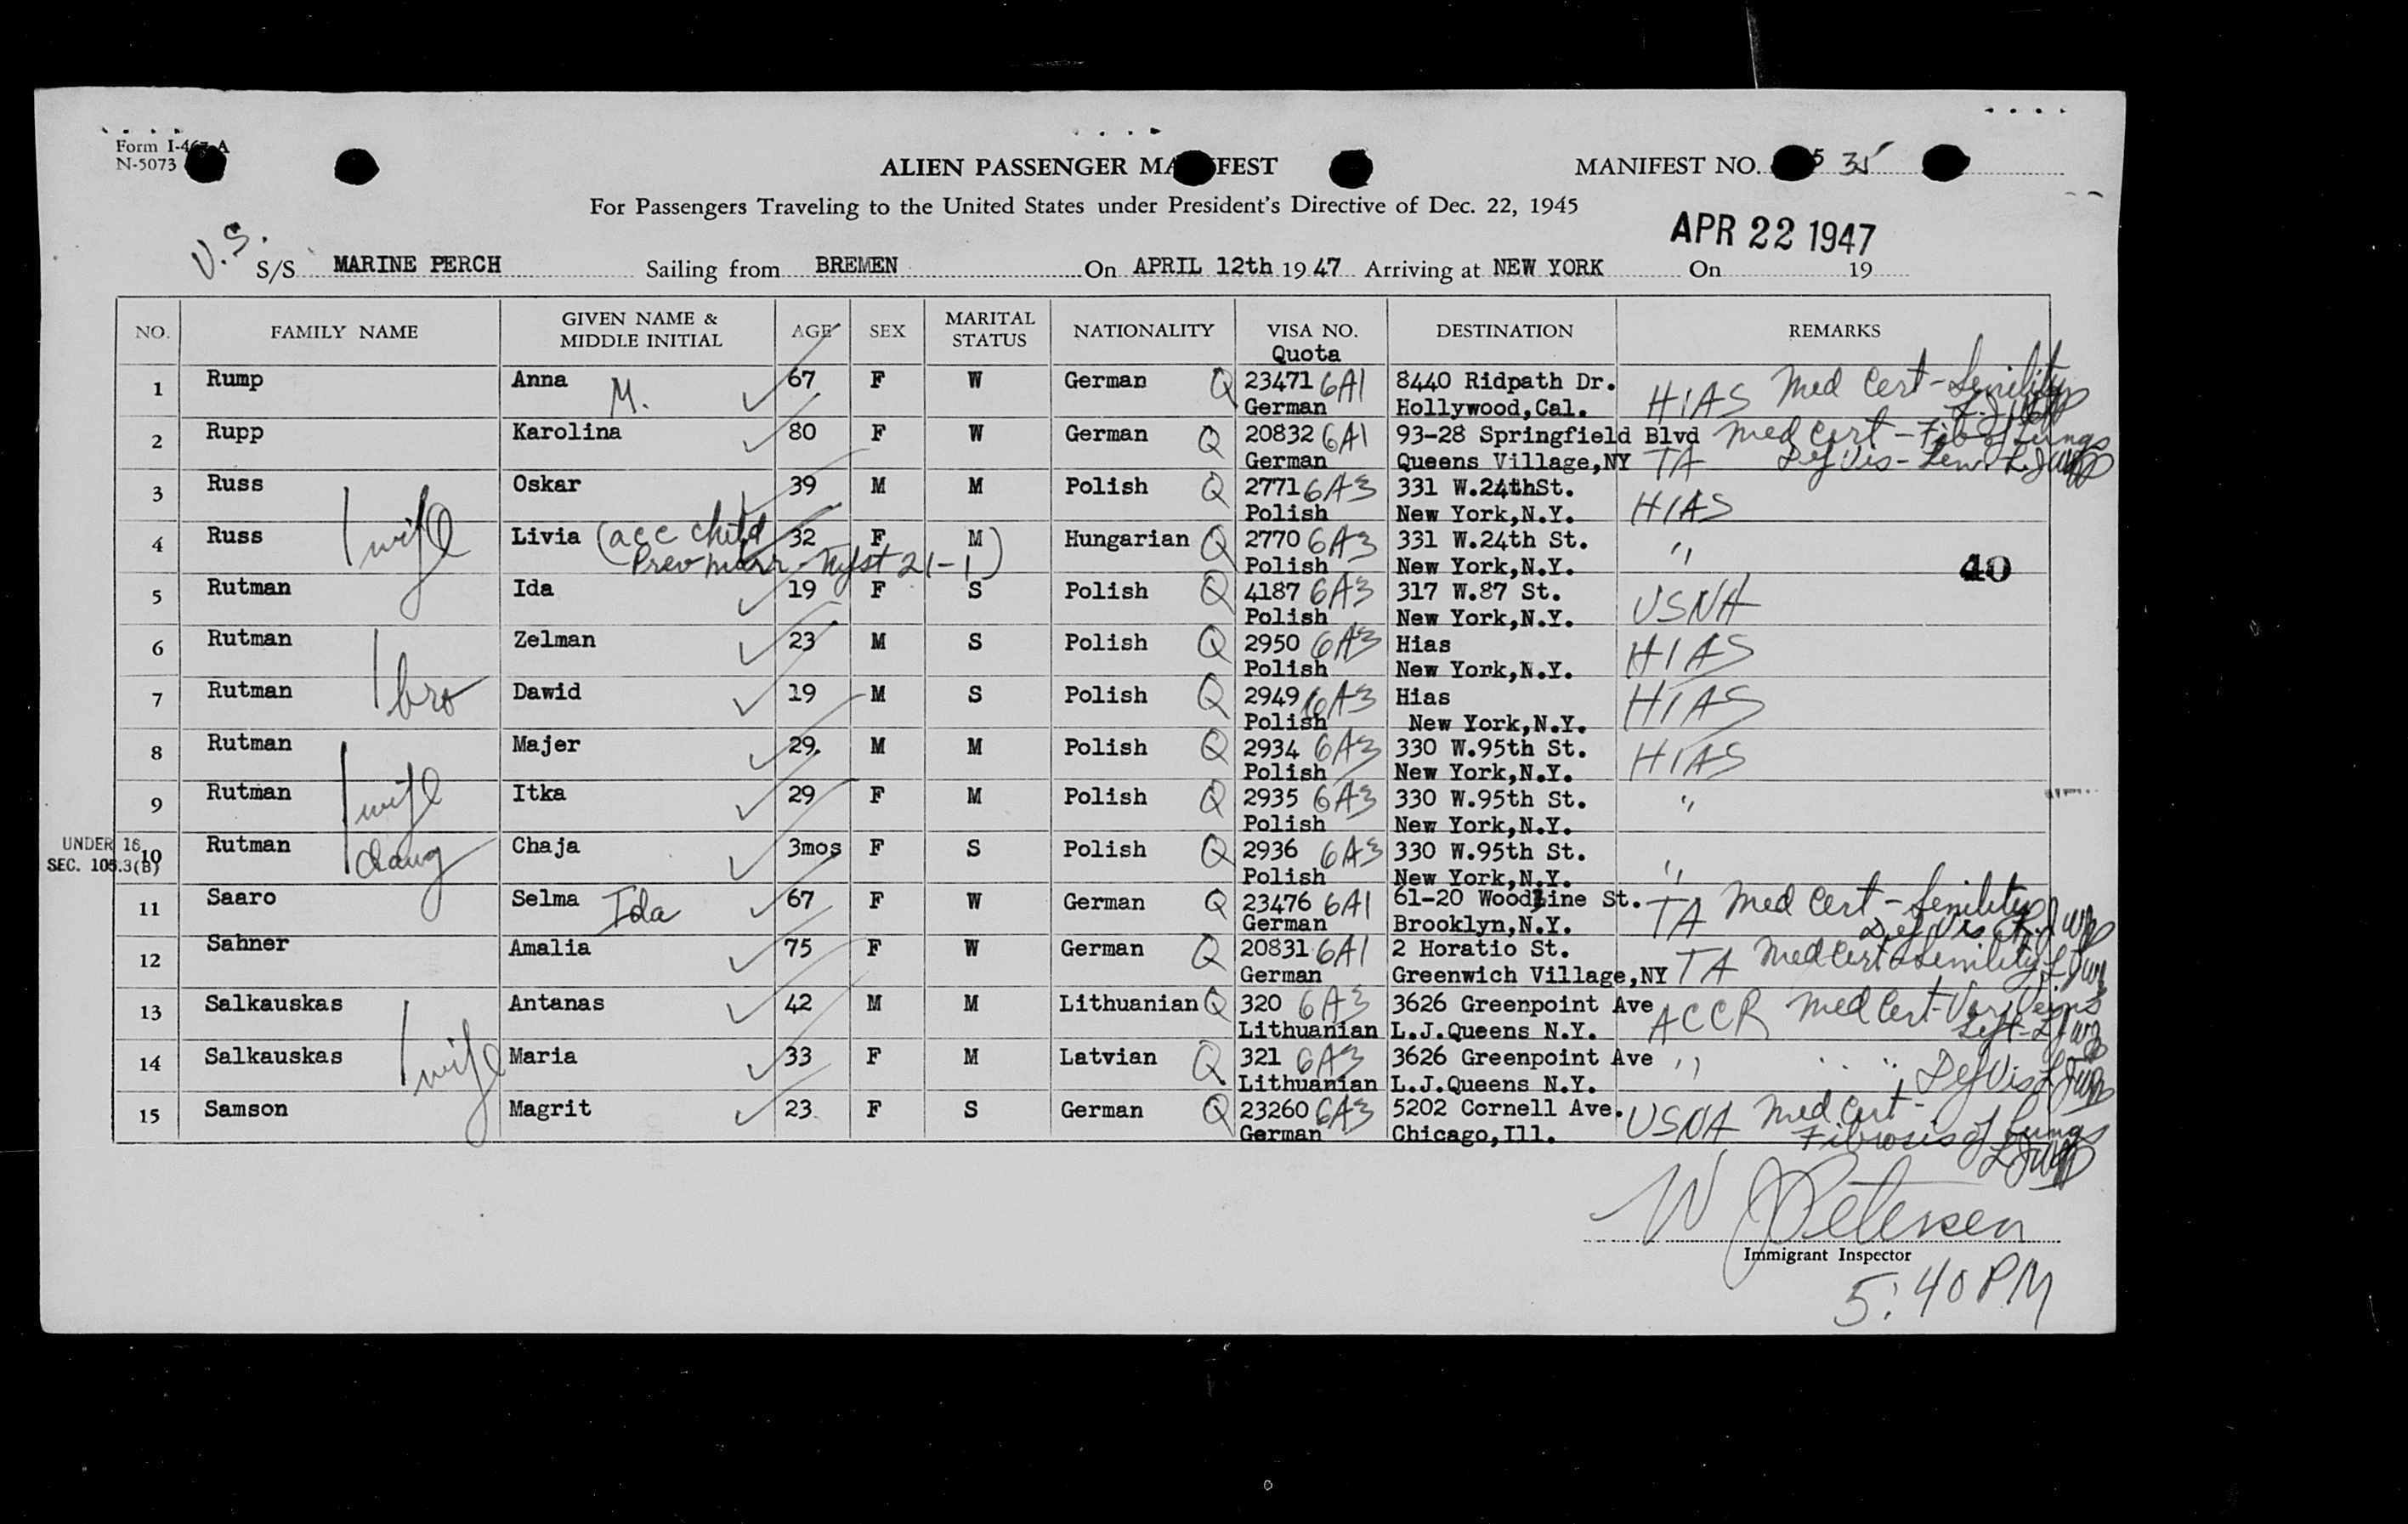 Form I-467-A
N-5073
ALIEN PASSENGER MA FEST
MANIFEST NO. 5 35
For Passengers Traveling to the United States under President's Directive of Dec. 22, 1945
APR 22 1947
U.S. S/S MARINE PERCH Sailing from BREMEN On APRIL 12th 1947 Arriving at NEW YORK On 19
NO. FAMILY NAME GIVEN NAME & MIDDLE INITIAL AGE SEX MARITAL STATUS NATIONALITY VISA NO. DESTINATION REMARKS
Quota
1 Rump Anna M. 67 F W German Q 23471 6A1 8440 Ridpath Dr. HIAS Med Cert - Senility
German Hollywood,Cal.
2 Rupp Karolina 80 F W German Q 20832 6A1 93-28 Springfield Blvd Med Cert - Fib of Lungs
German Queens Village,NY TA Def Vis - Sen
3 Russ Oskar 39 M M Polish Q 2771 6A3 331 W.24thSt. HIAS
Polish New York,N.Y.
4 Russ wife Livia (acc child 32 F M) Hungarian Q 2770 6A3 331 W.24th St. "
Prev 21-1 Polish New York,N.Y. 40
5 Rutman Ida 19 F S Polish Q 4187 6A3 317 W.87 St. USNA
Polish New York,N.Y.
6 Rutman Zelman 23 M S Polish Q 2950 6A3 Hias HIAS
Polish New York,N.Y.
7 Rutman bro Dawid 19 M S Polish Q 2949 6A3 Hias HIAS
Polish New York,N.Y.
8 Rutman Majer 29. M M Polish Q 2934 6A3 330 W.95th St. HIAS
Polish New York,N.Y.
9 Rutman wife Itka 29 F M Polish Q 2935 6A3 330 W.95th St. "
Polish New York,N.Y.
UNDER 16
SEC. 105.3(B)
10 Rutman daug Chaja 3mos F S Polish Q 2936 6A3 330 W.95th St. "
Polish New York,N.Y.
11 Saaro Selma Ida 67 F W German Q 23476 6A1 61-20 Woodbine St. TA Med Cert - Senility
German Brooklyn,N.Y. Def Vis
12 Sahner Amalia 75 F W German Q 20831 6A1 2 Horatio St. TA Med Cert Senility
German Greenwich Village,NY
13 Salkauskas Antanas 42 M M Lithuanian Q 320 6A3 3626 Greenpoint Ave ACCR Med Cert - Var Veins
Lithuanian L.J.Queens N.Y. Left
14 Salkauskas wife Maria 33 F M Latvian Q 321 6A3 3626 Greenpoint Ave " " Def Vis
Lithuanian L.J.Queens N.Y.
15 Samson Magrit 23 F S German Q 23260 6A3 5202 Cornell Ave. USNA Med Cert -
German Chicago,Ill. Fibrosis of Lungs
W J Petersen
Immigrant Inspector
5:40 PM